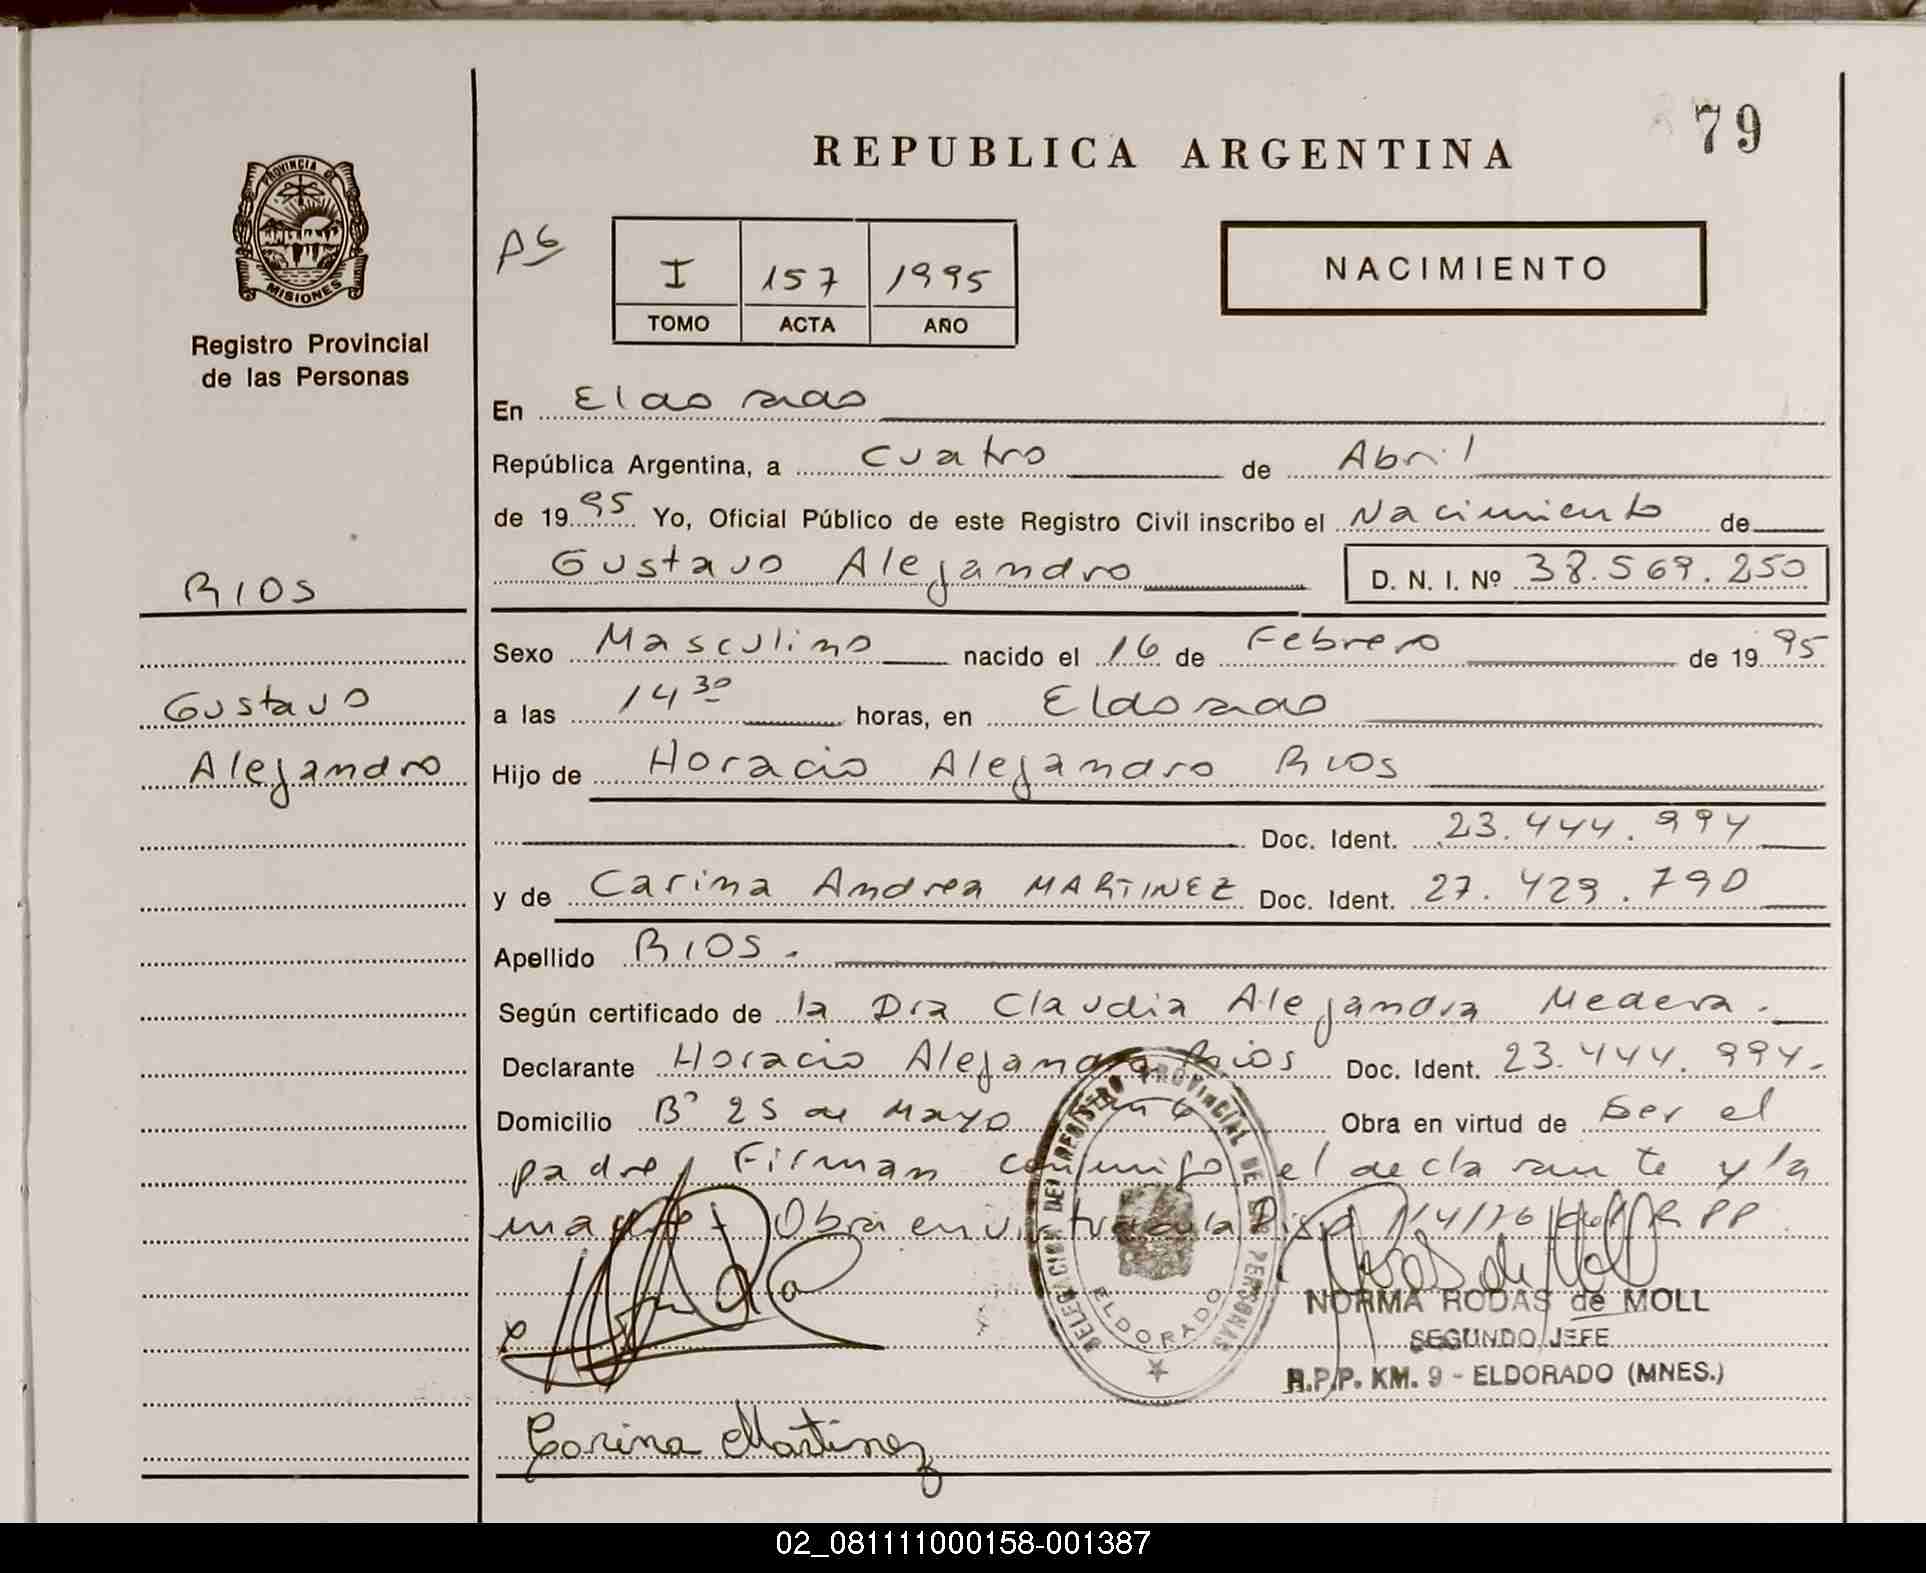 79
REPUBLICA ARGENTINA
PROVINCIA DE
MISIONES
Registro Provincial
de las Personas
I 157 1995
TOMO ACTA AÑO
NACIMIENTO
En Eldorado
República Argentina, a cuatro de Abril
de 1995 Yo, Oficial Público de este Registro Civil inscribo el Nacimiento de
Gustavo Alejandro D. N. I. Nº 38.569.250
RIOS
Sexo Masculino nacido el 16 de Febrero de 1995
Gustavo
a las 14 30 horas, en Eldorado
Alejandro
Hijo de Horacio Alejandro Rios
Doc. Ident. 23.444.994
y de Carina Andrea MARTINEZ Doc. Ident. 27.429.790
Apellido RIOS.
Según certificado de la Dra Claudia Alejandra Medera.
Declarante Horacio Alejandro Rios Doc. Ident. 23.444.994.
Domicilio Bº 25 de Mayo Obra en virtud de ser el
padre Firman conmigo el declarante y la
madre. Obra en virtud de la Disp 1/4/76 del R PP.
DELEGACION DEL REGISTRO PROVINCIAL DE LAS PERSONAS
ELDORADO
NORMA RODAS de MOLL
SEGUNDO JEFE
R.P.P. KM. 9 - ELDORADO (MNES.)
Carina Martinez
02_081111000158-001387